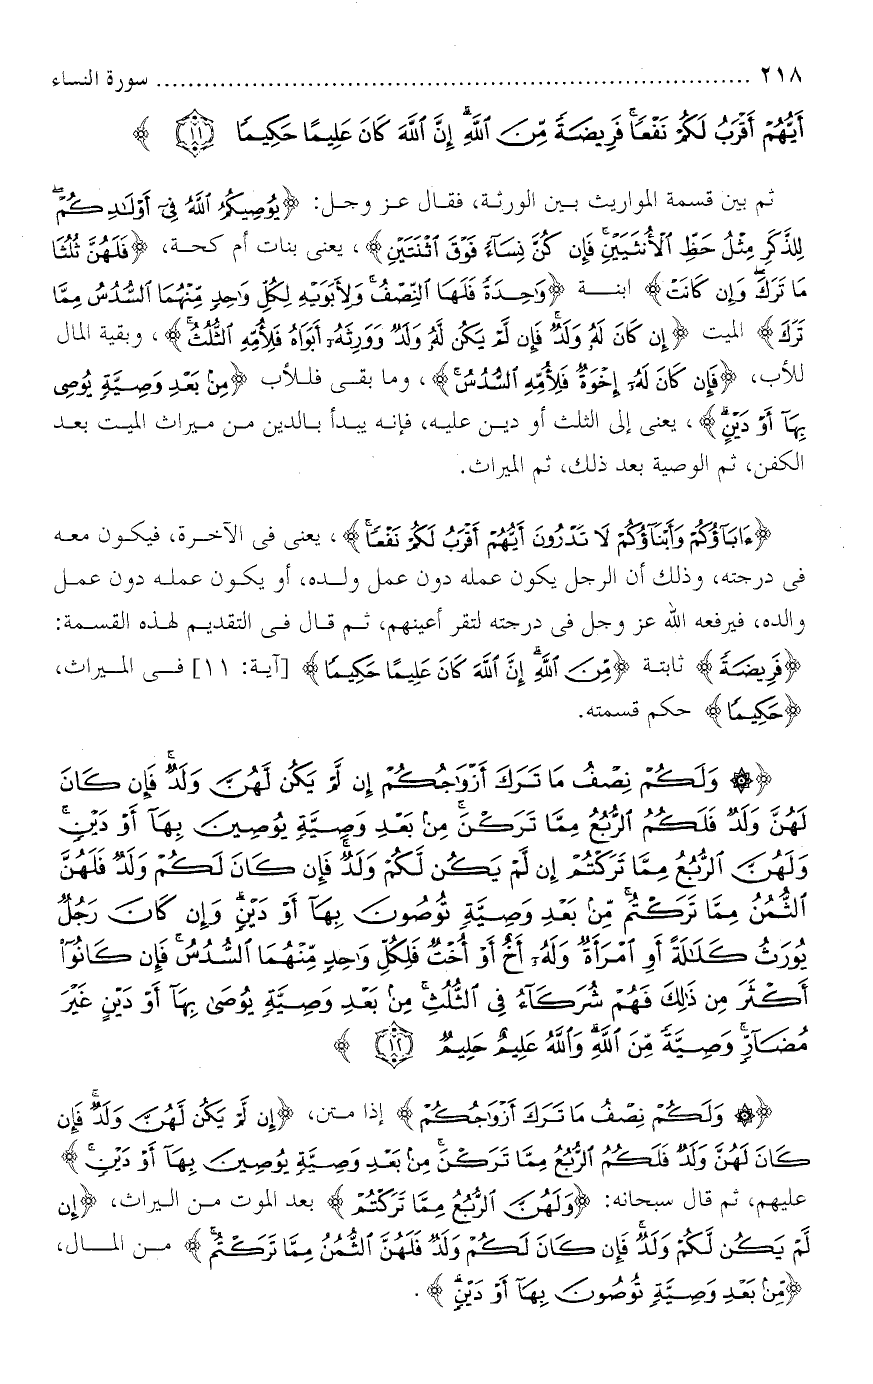 ٢١٨ ........................................................................... سورة النساء
أَيُّهُمْ أَقْرَبُ لَكُمْ نَفْعًا ۚ فَرِيضَةً مِّنَ اللَّهِ ۗ إِنَّ اللَّهَ كَانَ عَلِيمًا حَكِيمًا ﴿١١﴾ ﴾
ثم بين قسمة المواريث بين الورثة، فقال عز وجل: ﴿يُوصِيكُمُ اللَّهُ فِي أَوْلَادِكُمْ ۖ
لِلذَّكَرِ مِثْلُ حَظِّ الْأُنثَيَيْنِ ۚ فَإِن كُنَّ نِسَاءً فَوْقَ اثْنَتَيْنِ﴾، يعنى بنات أم كحة، ﴿فَلَهُنَّ ثُلُثَا
مَا تَرَكَ ۖ وَإِن كَانَتْ﴾ ابنة ﴿وَاحِدَةً فَلَهَا النِّصْفُ ۚ وَلِأَبَوَيْهِ لِكُلِّ وَاحِدٍ مِّنْهُمَا السُّدُسُ مِمَّا
تَرَكَ﴾ الميت ﴿إِن كَانَ لَهُ وَلَدٌ ۚ فَإِن لَّمْ يَكُن لَّهُ وَلَدٌ وَوَرِثَهُ أَبَوَاهُ فَلِأُمِّهِ الثُّلُثُ ۚ﴾، وبقية المال
للأب، ﴿فَإِن كَانَ لَهُ إِخْوَةٌ فَلِأُمِّهِ السُّدُسُ ۚ﴾، وما بقى فللأب ﴿مِن بَعْدِ وَصِيَّةٍ يُوصِي
بِهَا أَوْ دَيْنٍ ۗ﴾، يعنى إلى الثلث أو دين عليه، فإنه يبدأ بالدين من ميراث الميت بعد
الكفن، ثم الوصية بعد ذلك، ثم الميراث.
﴿ءَابَاؤُكُمْ وَأَبْنَاؤُكُمْ لَا تَدْرُونَ أَيُّهُمْ أَقْرَبُ لَكُمْ نَفْعًا ۚ﴾، يعنى فى الآخرة، فيكون معه
فى درجته، وذلك أن الرجل يكون عمله دون عمل ولده، أو يكون عمله دون عمل
والده، فيرفعه الله عز وجل فى درجته لتقر أعينهم، ثم قال فى التقديم لهذه القسمة:
﴿فَرِيضَةً﴾ ثابتة ﴿مِّنَ اللَّهِ ۗ إِنَّ اللَّهَ كَانَ عَلِيمًا حَكِيمًا﴾ [آية: ١١] فى الميراث،
﴿حَكِيمًا﴾ حكم قسمته.
﴿۞ وَلَكُمْ نِصْفُ مَا تَرَكَ أَزْوَاجُكُمْ إِن لَّمْ يَكُن لَّهُنَّ وَلَدٌ ۚ فَإِن كَانَ
لَهُنَّ وَلَدٌ فَلَكُمُ الرُّبُعُ مِمَّا تَرَكْنَ ۚ مِن بَعْدِ وَصِيَّةٍ يُوصِينَ بِهَا أَوْ دَيْنٍ ۚ
وَلَهُنَّ الرُّبُعُ مِمَّا تَرَكْتُمْ إِن لَّمْ يَكُن لَّكُمْ وَلَدٌ ۚ فَإِن كَانَ لَكُمْ وَلَدٌ فَلَهُنَّ
الثُّمُنُ مِمَّا تَرَكْتُم ۚ مِّن بَعْدِ وَصِيَّةٍ تُوصُونَ بِهَا أَوْ دَيْنٍ ۗ وَإِن كَانَ رَجُلٌ
يُورَثُ كَلَالَةً أَوِ امْرَأَةٌ وَلَهُ أَخٌ أَوْ أُخْتٌ فَلِكُلِّ وَاحِدٍ مِّنْهُمَا السُّدُسُ ۚ فَإِن كَانُوا
أَكْثَرَ مِن ذَٰلِكَ فَهُمْ شُرَكَاءُ فِي الثُّلُثِ ۚ مِن بَعْدِ وَصِيَّةٍ يُوصَىٰ بِهَا أَوْ دَيْنٍ غَيْرَ
مُضَارٍّ ۚ وَصِيَّةً مِّنَ اللَّهِ ۗ وَاللَّهُ عَلِيمٌ حَلِيمٌ ﴿١٢﴾ ﴾
﴿۞ وَلَكُمْ نِصْفُ مَا تَرَكَ أَزْوَاجُكُمْ﴾ إذا متن، ﴿إِن لَّمْ يَكُن لَّهُنَّ وَلَدٌ ۚ فَإِن
كَانَ لَهُنَّ وَلَدٌ فَلَكُمُ الرُّبُعُ مِمَّا تَرَكْنَ ۚ مِن بَعْدِ وَصِيَّةٍ يُوصِينَ بِهَا أَوْ دَيْنٍ ۚ﴾
عليهم، ثم قال سبحانه: ﴿وَلَهُنَّ الرُّبُعُ مِمَّا تَرَكْتُمْ﴾ بعد الموت من الميراث، ﴿إِن
لَّمْ يَكُن لَّكُمْ وَلَدٌ ۚ فَإِن كَانَ لَكُمْ وَلَدٌ فَلَهُنَّ الثُّمُنُ مِمَّا تَرَكْتُم ۚ﴾ من المال،
﴿مِّن بَعْدِ وَصِيَّةٍ تُوصُونَ بِهَا أَوْ دَيْنٍ ۗ﴾.